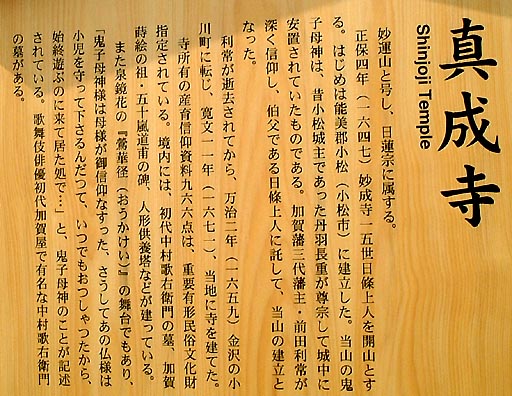 真成寺
Shinjoji Temple
妙運山と号し、日蓮宗に属する。
正保四年（一六四七）妙成寺一五世日條上人を開山とす
る。はじめは能美郡小松（小松市）に建立した。当山の鬼
子母神は、昔小松城主であった丹羽長重が尊崇して城中に
安置されていたものである。加賀藩三代藩主・前田利常が
深く信仰し、伯父である日條上人に託して、当山の建立と
なった。
利常が逝去されてから、万治二年（一六五九）金沢の小
川町に転じ、寛文一一年（一六七一）、当地に寺を建てた。
寺所有の産育信仰資料九六六点は、重要有形民俗文化財
指定されている。境内には、初代中村歌右衛門の墓、加賀
蒔絵の祖・五十嵐道甫の碑、人形供養塔などが建っている。
また泉鏡花の『鶯華径（おうかけい）』の舞台でもあり、
「鬼子母神様は母様が御信仰なすった、さうしてあの仏様は
小児を守って下さるんだつて、いつでもおつしゃつたから、
始終遊ぶのに来て居た処で…」と、鬼子母神のことが記述
されている。歌舞伎俳優初代加賀屋で有名な中村歌右衛門
の墓がある。